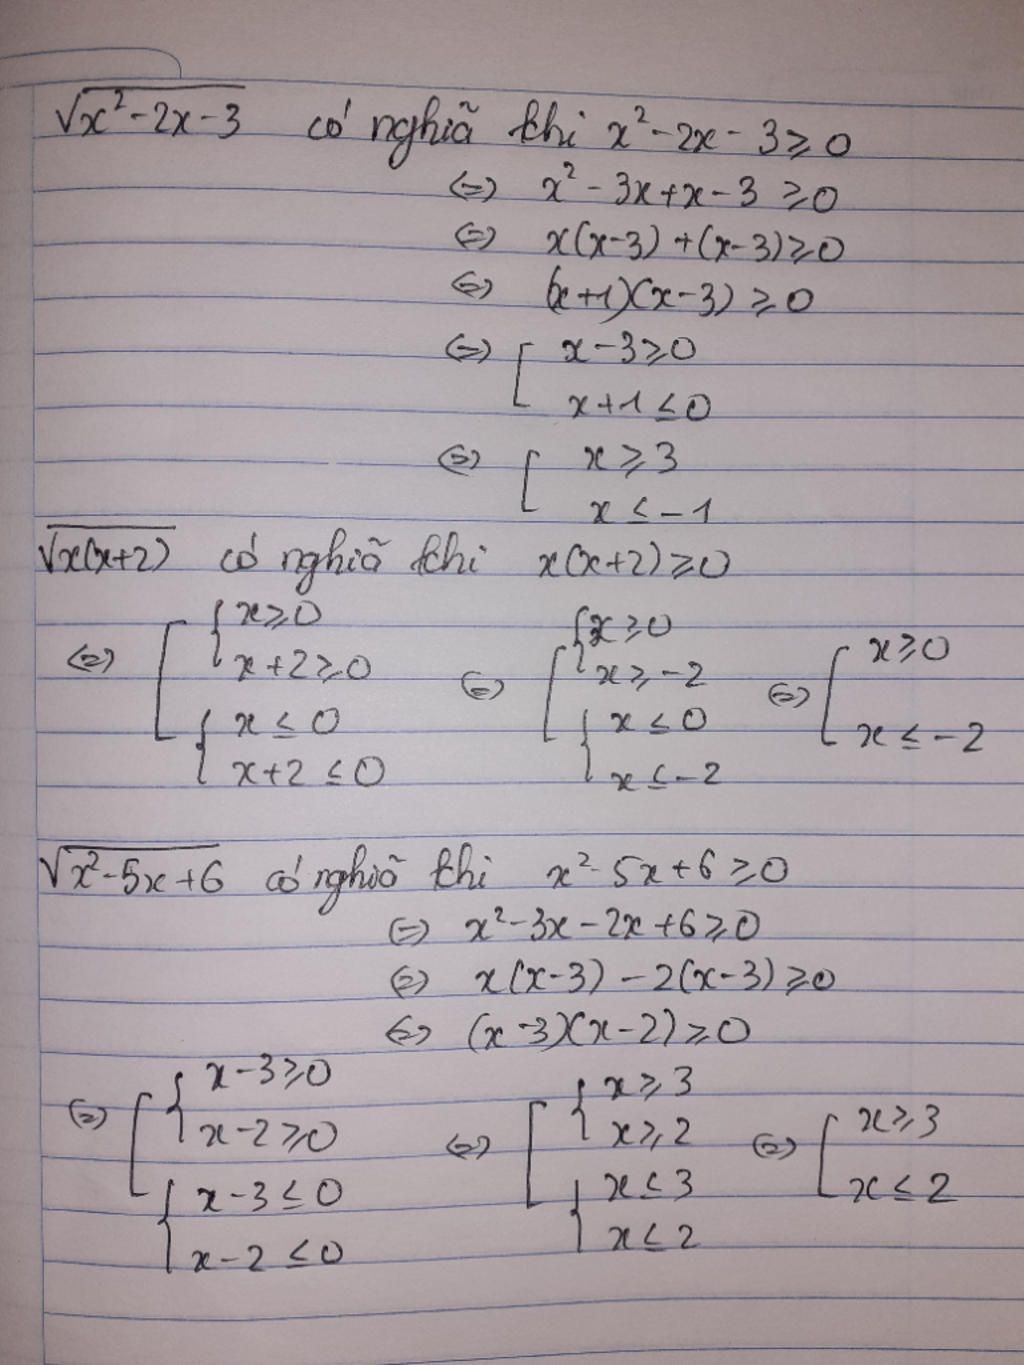 √x²-2x-3 có nghĩa khi x²-2x-3⩾0
⇔ x²-3x+x-3 ⩾0
⇔ x(x-3) +(x-3)⩾0
⇔ (x+1)(x-3) ⩾0
⇔ [ x-3⩾0
x+1 ≤0
⇔ [ x ⩾ 3
x ≤ -1
√x(x+2) có nghĩa khi x(x+2)⩾0
⇔ [ { x⩾0
x+2⩾0
{ x ≤ 0
x+2 ≤0
⇔ [ { x ⩾0
x ⩾ -2
{ x ≤0
x ≤ -2
⇔ [ x ⩾0
x ≤ -2
√x²-5x+6 có nghĩa khi x²-5x+6 ⩾0
⇔ x²-3x-2x+6⩾0
⇔ x(x-3) -2(x-3)⩾0
⇔ (x-3)(x-2)⩾0
⇔ [ { x-3⩾0
x-2⩾0
{ x-3 ≤0
x-2 ≤0
⇔ [ { x ⩾ 3
x ⩾ 2
{ x ≤ 3
x ≤ 2
⇔ [ x ⩾ 3
x ≤ 2